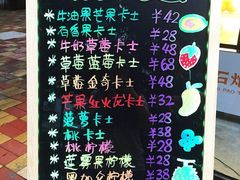 牛油果芒果卡士 ¥42
百香果卡士 ¥28
牛奶草莓卡士 ¥48
草莓蓝莓卡士 ¥68
草莓金奇卡士 ¥48
芒果红火龙卡士 ¥32
菠萝卡士 ¥28
桃卡士 ¥28
桃柠檬 ¥28
莲雾果柠檬 ¥38
黑加仑柠檬 ¥38